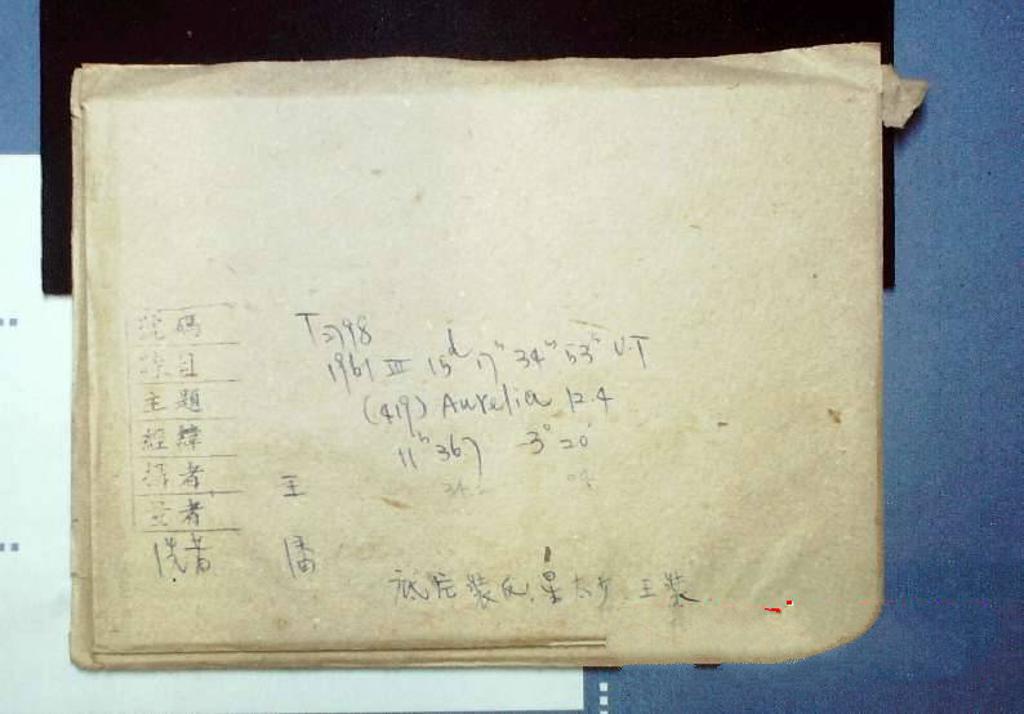 號碼 T2798
項目 1961 III 15ᵈ 17ʰ 34ᵐ 53ˢ U.T
主題 (419) Aurelia 12.4
經緯 11ʰ 36.7 -3° 20′
者 王
者
洗者 潘
底片装反,星太少 王装